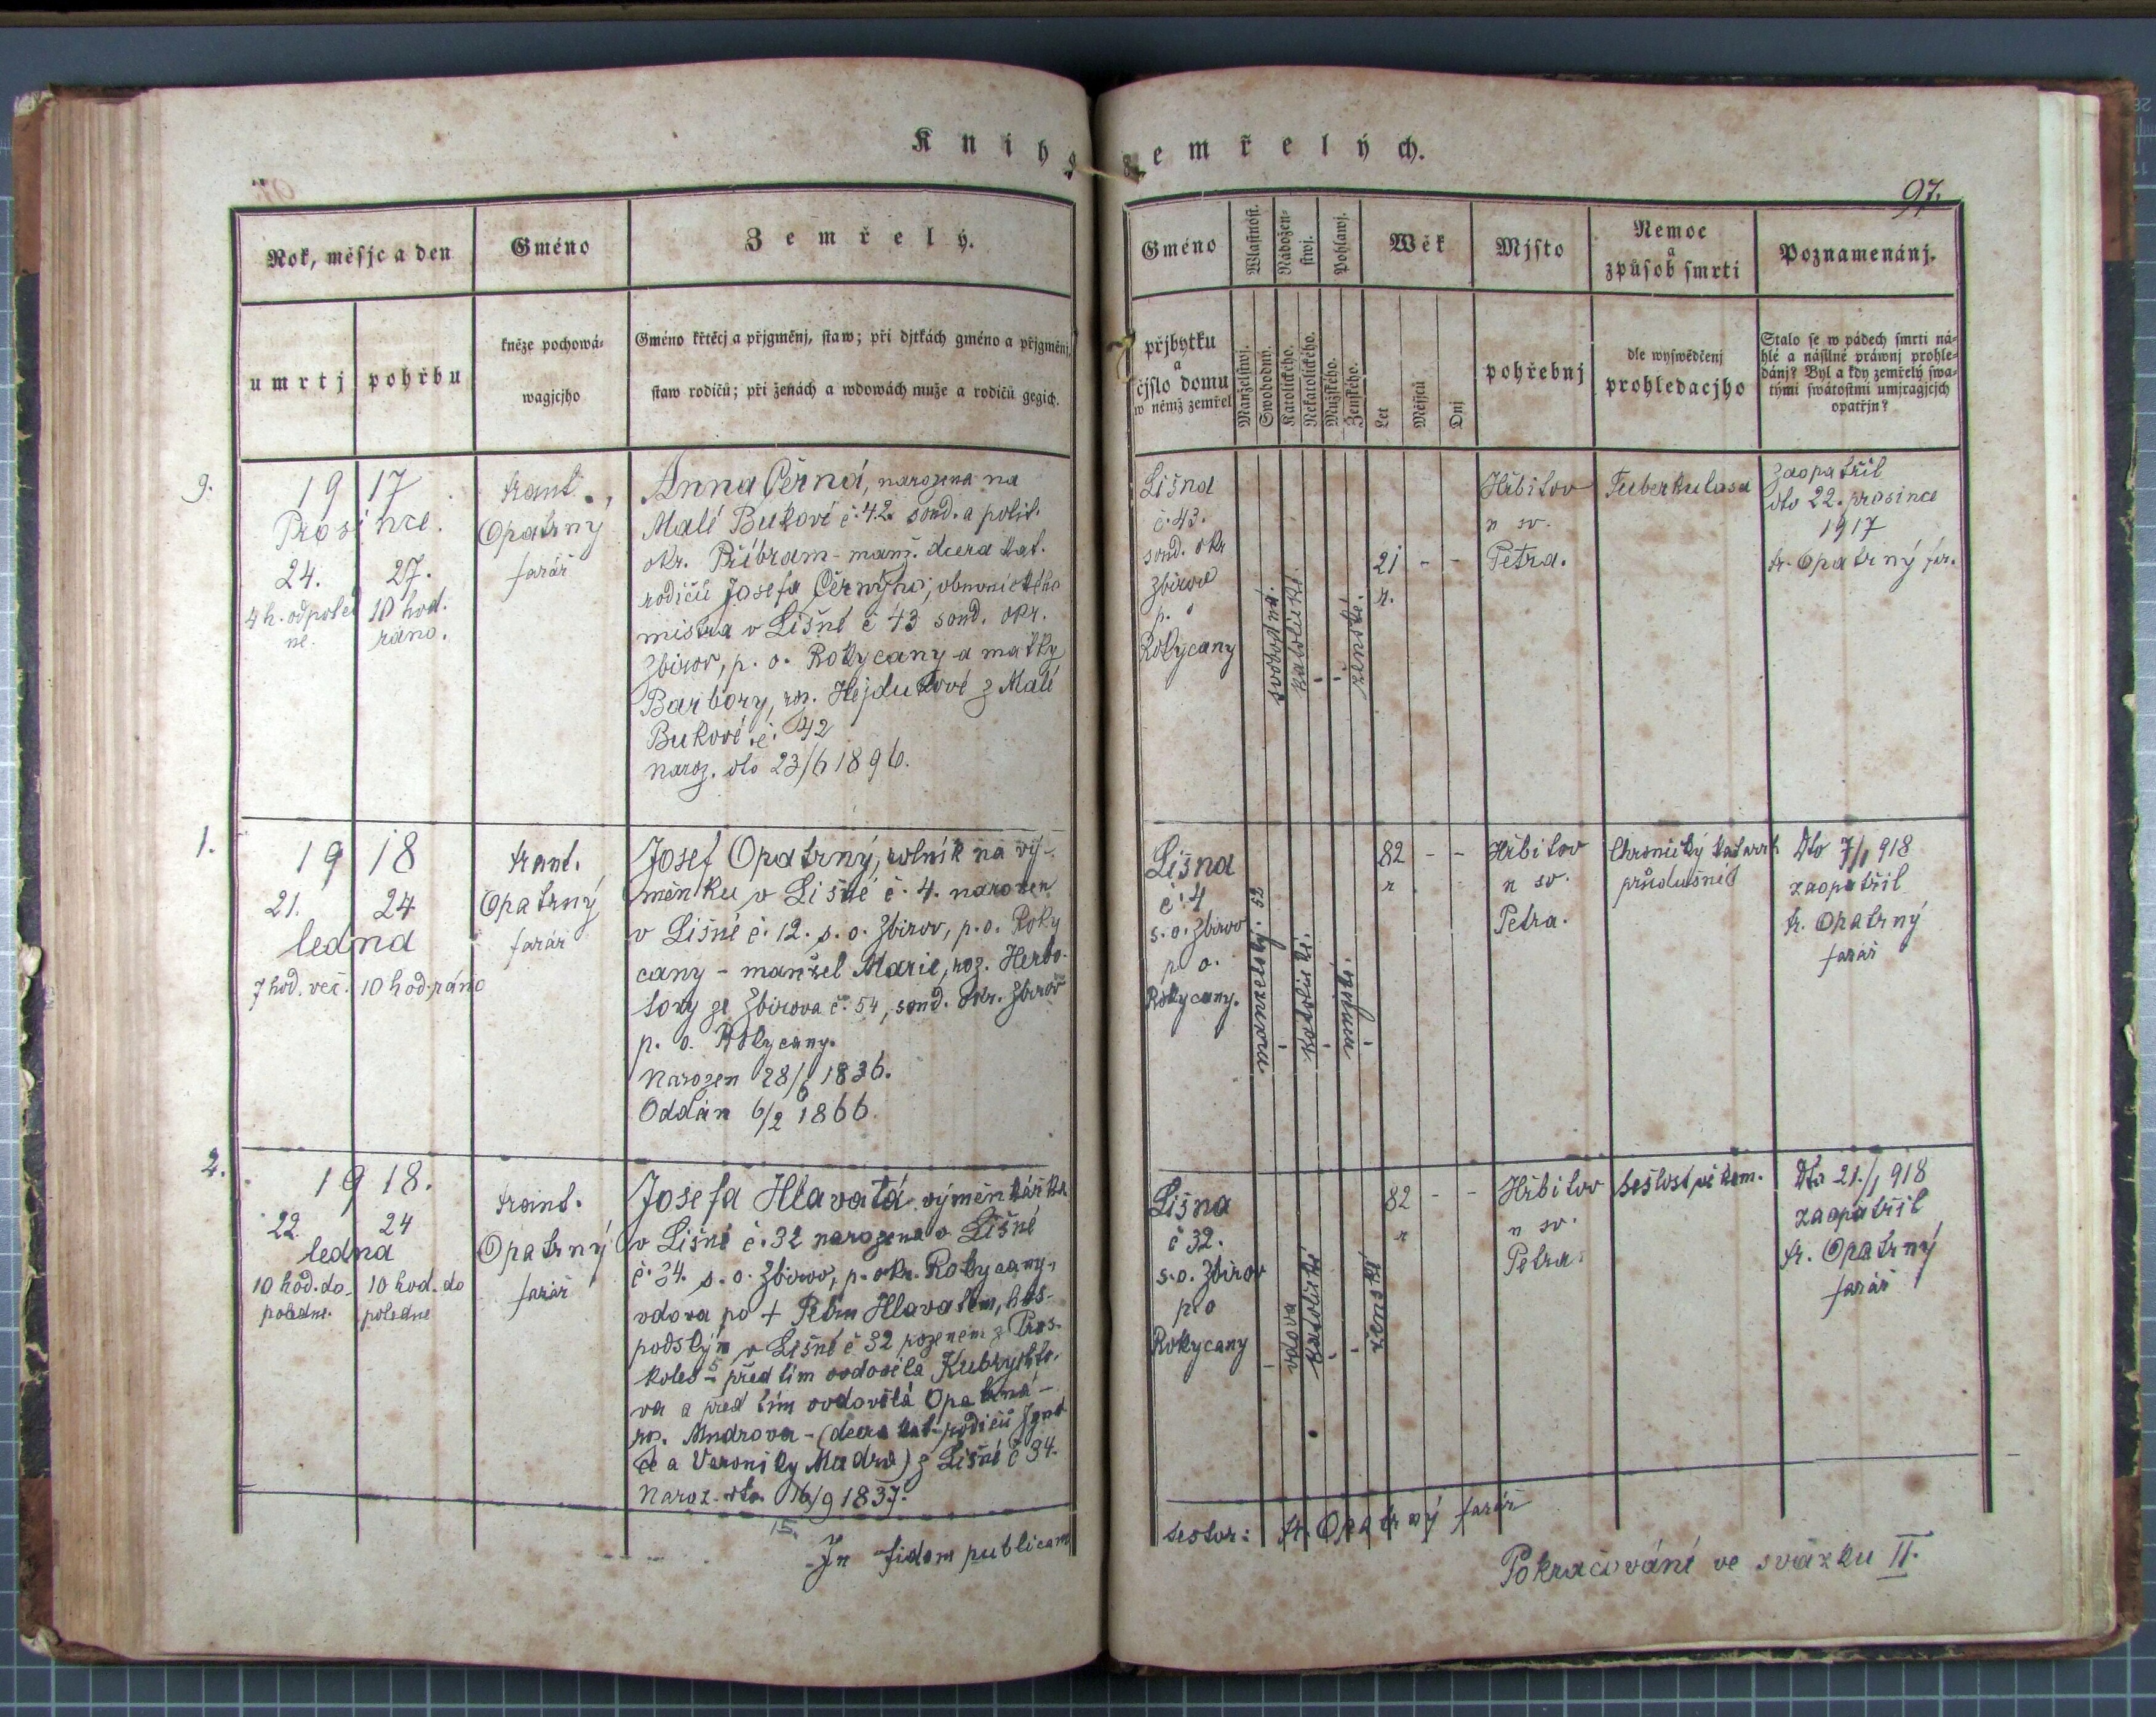 Kniha zemřelých.
97.
Rok, měsjc a den
Gméno
Zemřelý.
umrtj
pohřbu
kněze pochowá-
wagjcjho
Gméno křtěcj a přjgměnj, staw; při djtkách gméno a přjgměnj,
staw rodičů; při ženách a wdowách muže a rodičů gegich.
Gméno
přjbytku
a
čjslo domu
w němž zemřel
Wlastnost.
Nábožen-
stwj.
Pohlawj.
Manželstwj.
Swobodnw.
Katolického.
Nekatolického.
Mužského.
Ženského.
Wěk
Let
Měsjců
Dnj
Mjsto
pohřebnj
Nemoc
a
způsob smrti
dle wyswědčenj
prohledacjho
Poznamenánj.
Stalo se w pádech smrti ná-
hlé a násilné práwnj prohle-
dánj? Byl a kdy zemřelý swa-
tými swátostmi umjragjcjch
opatřjn?
9.
1917
Prosince.
24.
27.
4 h. odpoled
ne.
10 hod.
ráno.
Frant.
Opatrný
farář
Anna Černá, narozena na
Malé Bukové č. 42. soud. a polit.
okr. Příbram - manž. dcera kat.
rodičů Josefa Černýho, obuvnického
mistra v Lišné č 43 soud. okr.
Zbirov, p. o. Rokycany a matky
Barbory, roz. Hejdukové z Malé
Bukové č. 42
naroz. dto 23/6 1896.
Lišna
č. 43.
soud. okr
Zbirov
p. o
Rokycany
svobodná.
katolické.
ženské.
21 - -
r.
Hřbitov
u sv.
Petra.
Tuberkulosa
Zaopatřil
dto 22. prosince
1917
Fr. Opatrný far.
1.
1918
21.
24
ledna
7 hod. več.
10 hod. ráno
Frant.
Opatrný
farář
Josef Opatrný, rolník na vý-
měnku v Lišné č. 4. narozen
v Lišné č. 12. s. o. Zbirov, p. o. Roky
cany - manžel Marie, roz. Herbo-
tovy ze Zbirova č. 54, soud. okr. Zbirov
p. o. Rokycany.
Narozen 28/6 1836.
Oddán 6/2 1866.
Lišna
č. 4
s. o. Zbirov
p o.
Rokycany.
manželský. 52
katolické.
82 - -
r
Hřbitov
u sv.
Petra.
Chronický katarrh
průdušneí
Dto 7/1 918
zaopatřil
Fr. Opatrný
farář
2.
1918.
22.
24
ledna
10 hod. do-
poledne.
10 hod. do
poledne
Frant.
Opatrný
farář
Josefa Hlavatá výměnkářka
v Lišné č. 32 narozena v Lišné
č. 34. s. o. Zbirov, p. okr. Rokycany,
vdova po + Petru Hlavatém, hos-
podským v Lišné č 32 rozeném z Pras-
koles - před tím ovdovělá Kubrychto-
va a před tím ovdovělá Opatrná -
roz. Mudrova - (dcera kat. rodičů Igná
ce a Veroniky Mudra) z Lišné č 34.
Naroz. dto 16/9 1837.
15.
Lišna
č 32.
s. o. Zbirov
p. o
Rokycany
vdova
katolické
ženské
82 - -
r
Hřbitov
u sv.
Petra.
Sešlost věkem.
Dto 21./1 918
zaopatřil
Fr. Opatrný
farář
In fidem publicam
testor: Fr. Opatrný farář
Pokračování ve svazku II.